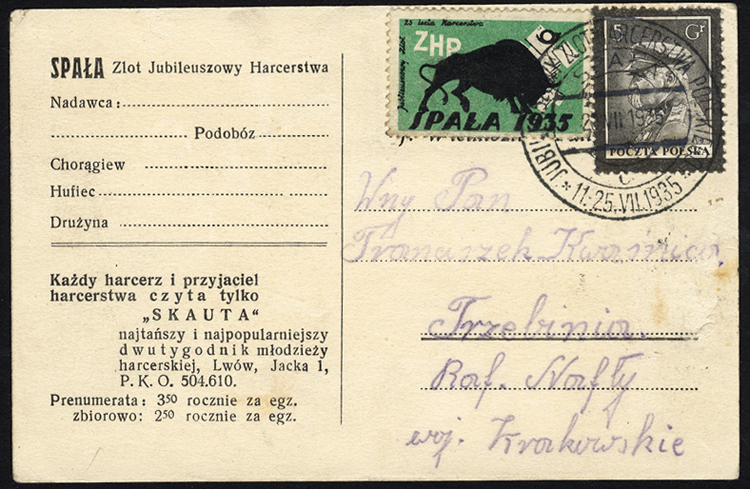 SPAŁA Zlot Jubileuszowy Harcerstwa
Nadawca:
Podobóz
Chorągiew
Hufiec
Drużyna
Każdy harcerz i przyjaciel
harcerstwa czyta tylko
„SKAUTA"
najtańszy i najpopularniejszy
dwutygodnik młodzieży
harcerskiej, Lwów, Jacka 1,
P. K. O. 504.610.
Prenumerata: 3⁵⁰ rocznie za egz.
zbiorowo: 2⁵⁰ rocznie za egz.
25 lecia Harcerstwa
Jubileuszowy Zlot
ZHP
SPAŁA 1935
Gr
POCZTA POLSKA
11-25.VII.1935
Wny Pan
Franciszek
Trzebinia
Raf. Nafty
woj. Krakowskie